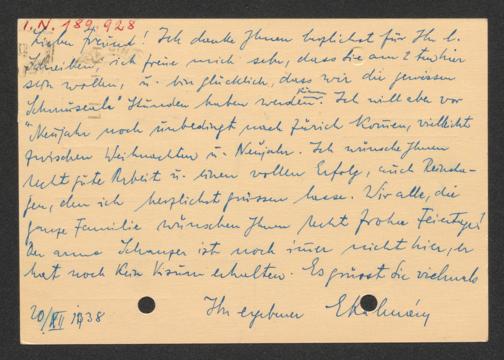 I.N. 189.928
Lieber Freund! Ich danke Ihnen herzlichst für Ihr l.
Schreiben, ich freue mich sehr, dass Sie am 2 hier
sein wollen, u. bin glücklich, dass wir die gewissen
"Schmusente" Stunden haben werden. Ich will aber vor
Neujahr noch unbedingt nach Zürich kommen, vielleicht
zwischen Weihnachten u. Neujahr. Ich wünsche Ihnen
recht gute Arbeit u. einen vollen Erfolg, auch
den ich herzlichst grüssen lasse. Wir alle, die
ganze Familie wünschen Ihnen recht frohe Feiertage!
Der arme ist noch immer nicht hier, er
hat noch kein Visum erhalten. Es grüsst Sie vielmals
20/XII 1938 Ihr ergebener EKálmán